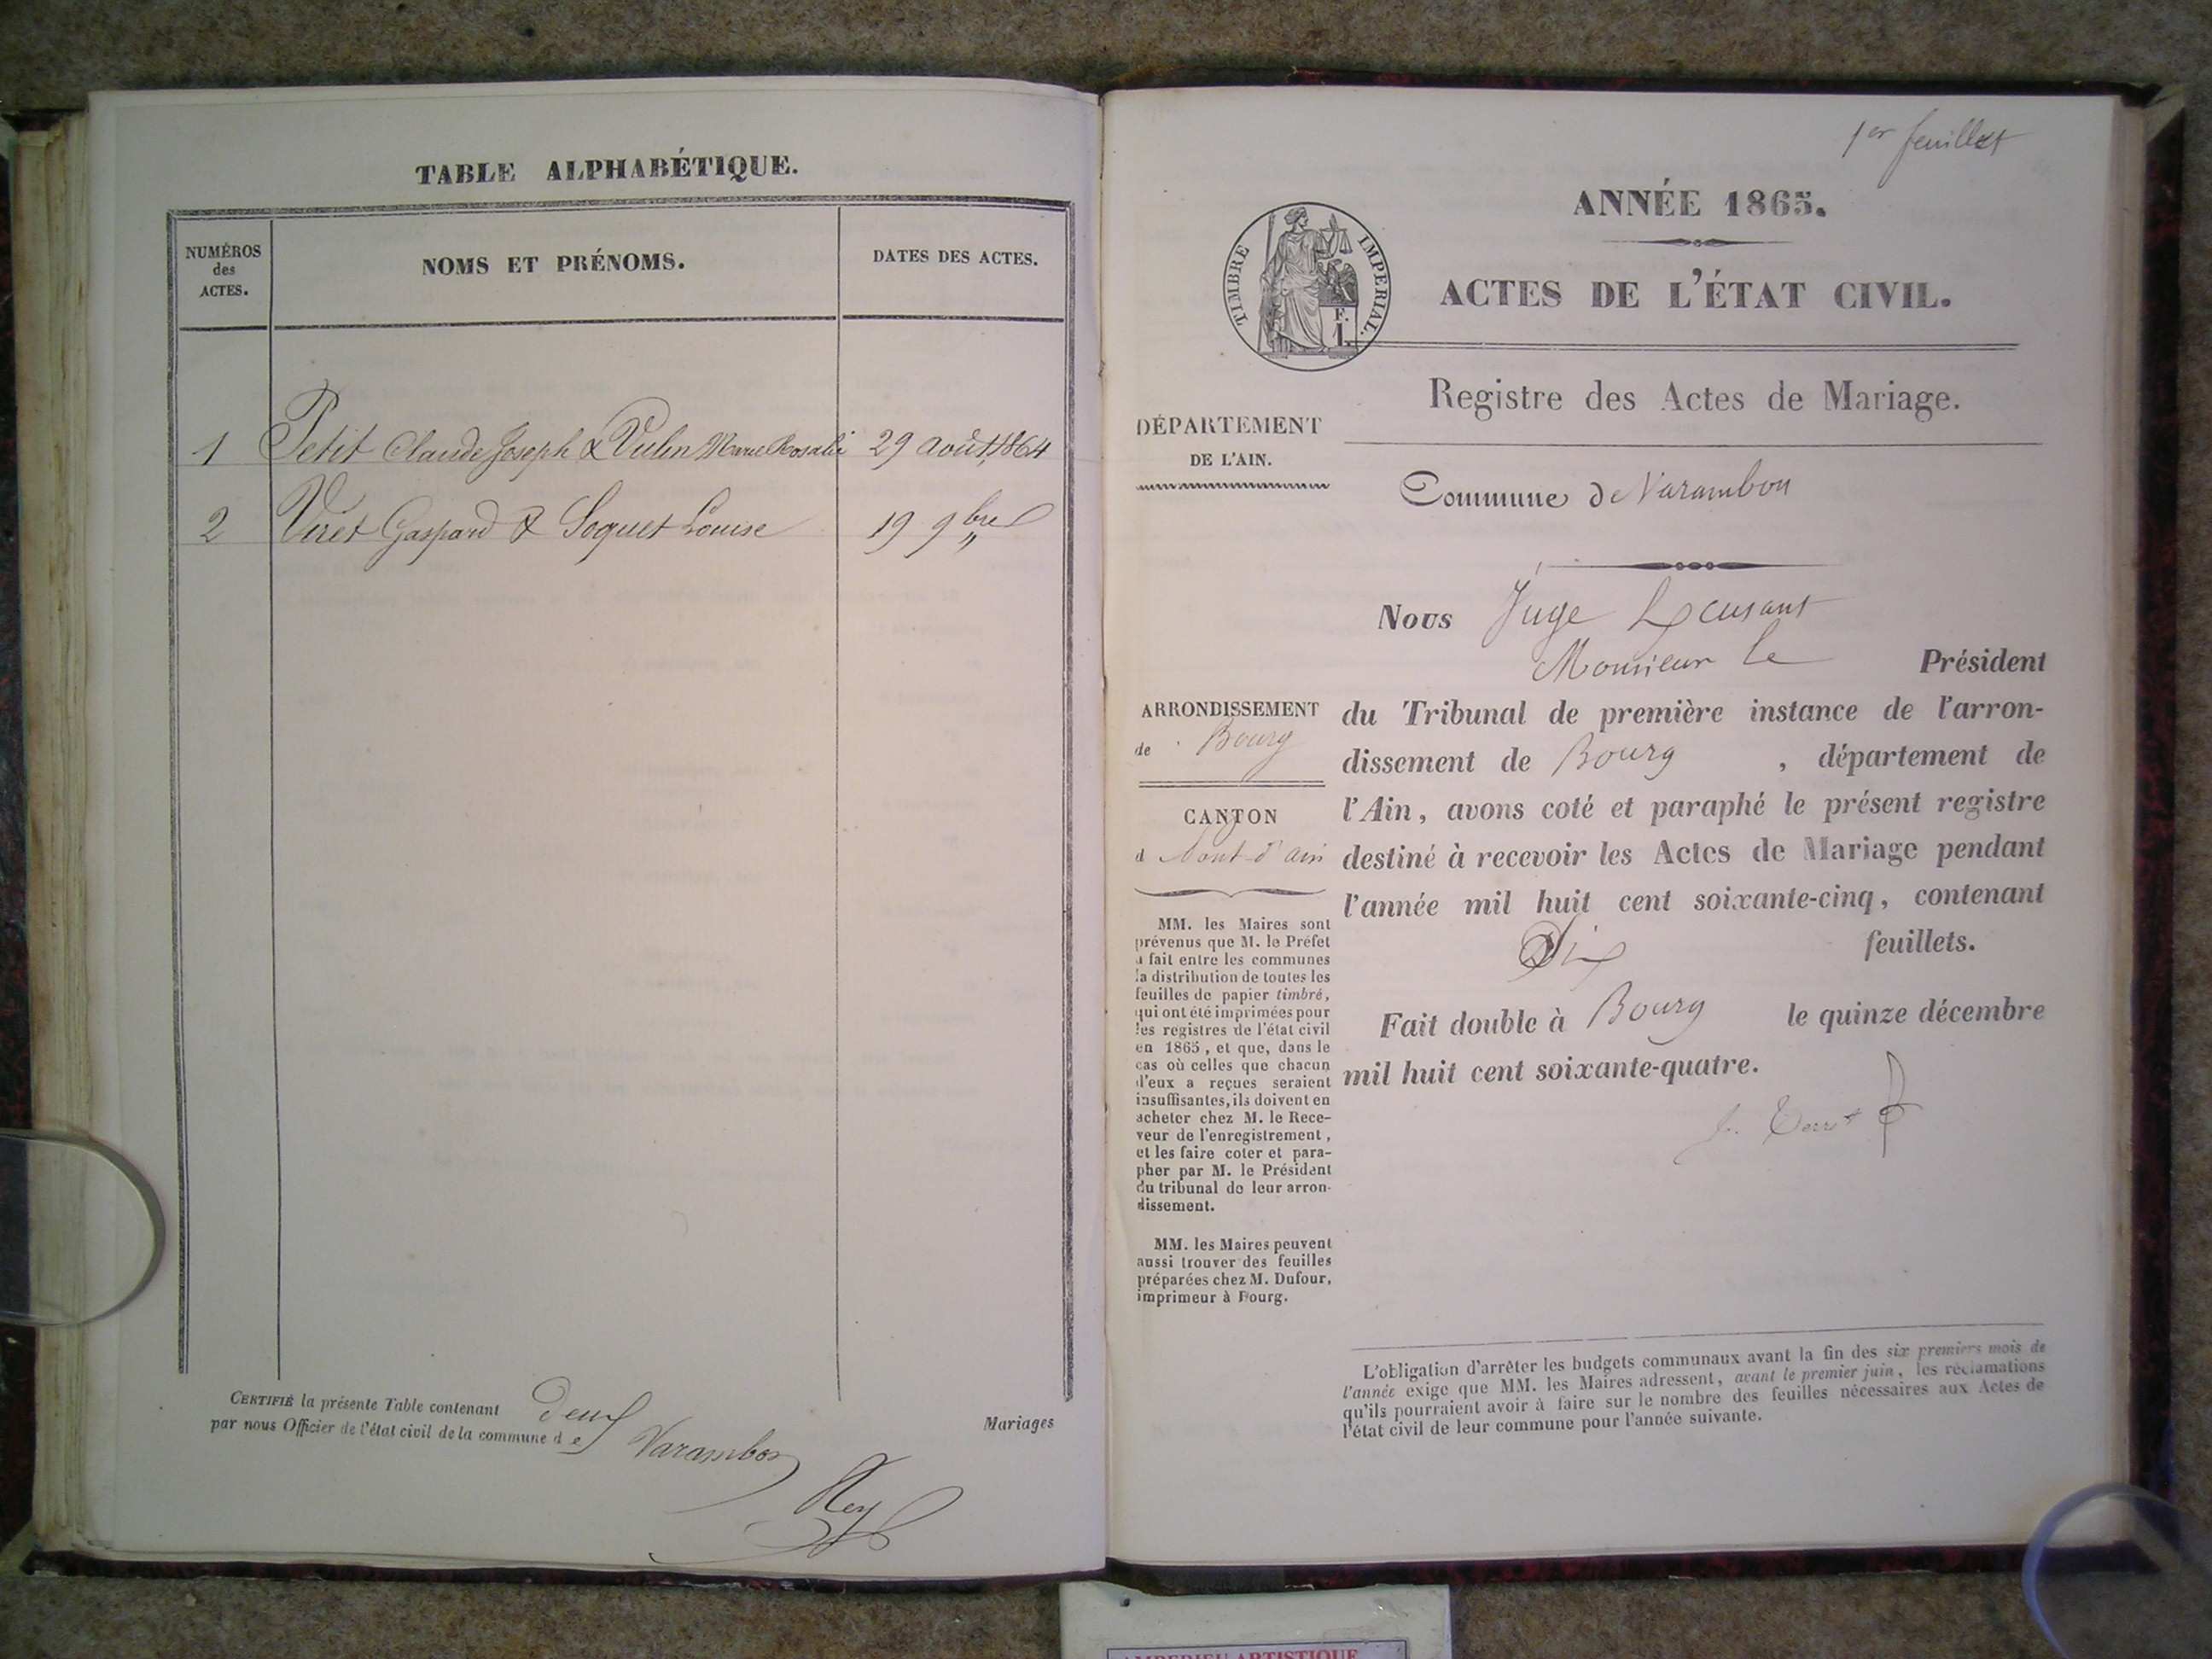 TABLE ALPHABÉTIQUE.
NUMÉROS
des
ACTES.
NOMS ET PRÉNOMS.
DATES DES ACTES.
1 Petit Claude Joseph & Vulin Marie Rosalie 29 août 1864
2 Viret Gaspard & Soquet Louise 19 9bre "
CERTIFIÉ la présente Table contenant deux Mariages
par nous Officier de l'état civil de la commune de Varambon
Rey
1er feuillet
ANNÉE 1865.
TIMBRE IMPERIAL.
F.
1.
ACTES DE L'ÉTAT CIVIL.
Registre des Actes de Mariage.
DÉPARTEMENT
DE L'AIN.
Commune de Varambon
ARRONDISSEMENT
de Bourg
CANTON
d Pont d'ain
MM. les Maires sont
prévenus que M. le Préfet
a fait entre les communes
la distribution de toutes les
feuilles de papier timbré,
qui ont été imprimées pour
les registres de l'état civil
en 1865, et que, dans le
cas où celles que chacun
d'eux a reçues seraient
insuffisantes, ils doivent en
acheter chez M. le Rece-
veur de l'enregistrement,
et les faire coter et para-
pher par M. le Président
du tribunal de leur arron-
dissement.
MM. les Maires peuvent
aussi trouver des feuilles
préparées chez M. Dufour,
imprimeur à Bourg.
Nous Juge
Monsieur le Président
du Tribunal de première instance de l'arron-
dissement de Bourg, département de
l'Ain, avons coté et paraphé le présent registre
destiné à recevoir les Actes de Mariage pendant
l'année mil huit cent soixante-cinq, contenant
Dix feuillets.
Fait double à Bourg le quinze décembre
mil huit cent soixante-quatre.
L'obligation d'arrêter les budgets communaux avant la fin des six premiers mois de
l'année exige que MM. les Maires adressent, avant le premier juin, les réclamations
qu'ils pourraient avoir à faire sur le nombre des feuilles nécessaires aux Actes de
l'état civil de leur commune pour l'année suivante.
AMBERIEU ARTISTIQUE